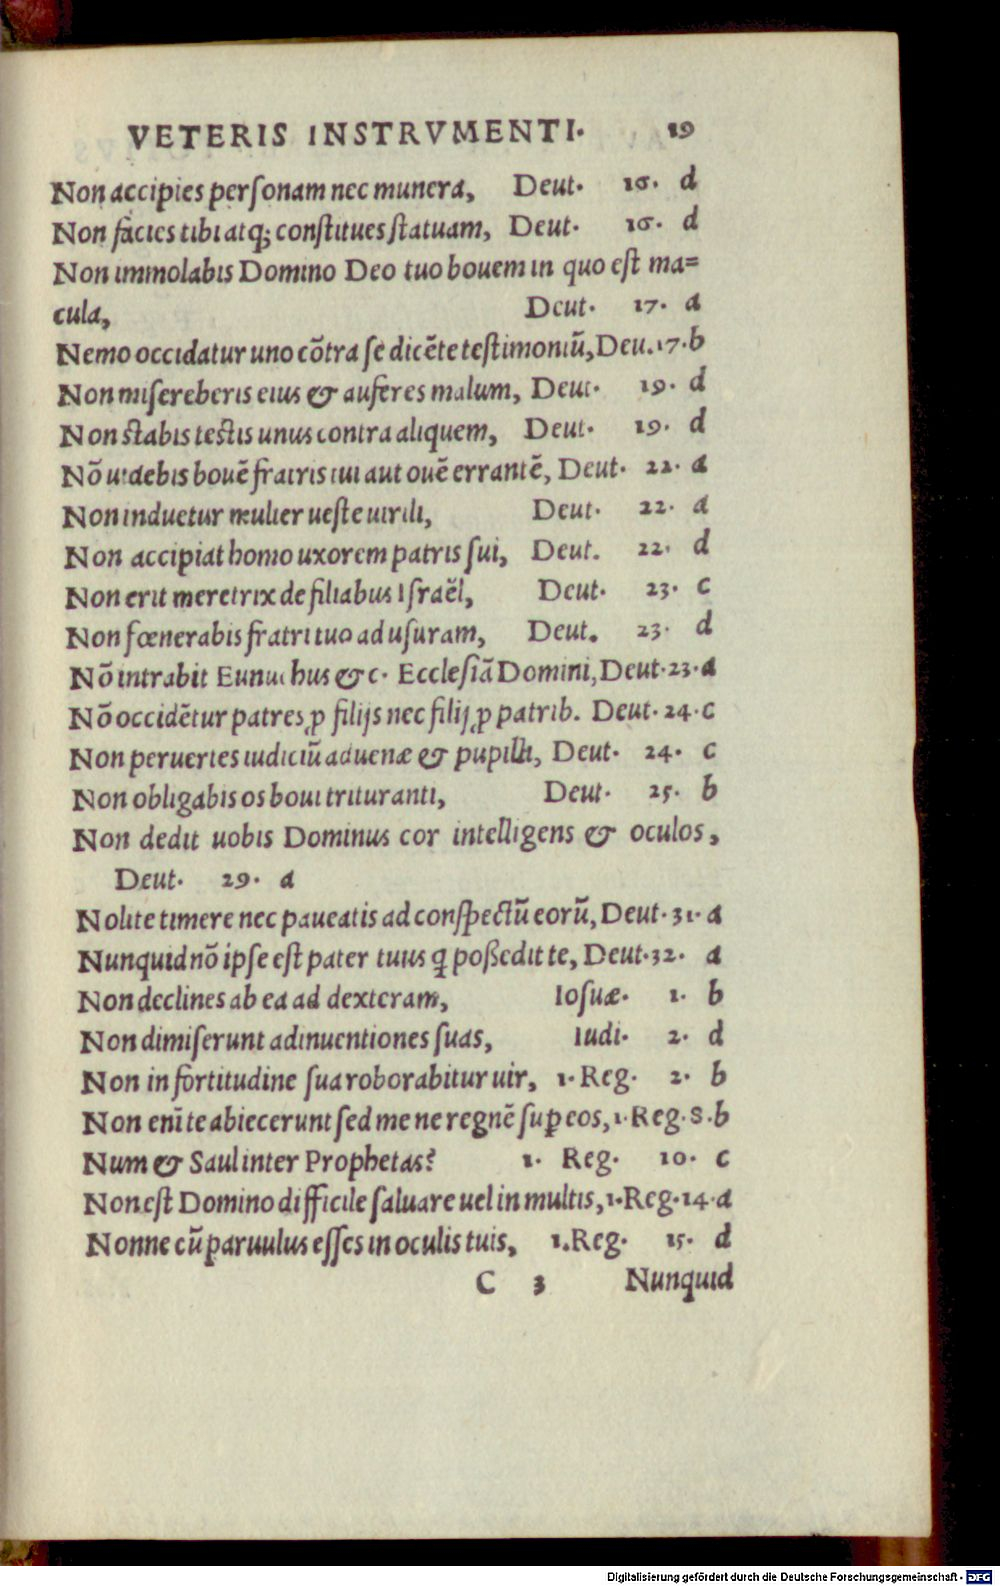 VETERIS INSTRVMENTI. 19
Non accipies perſonam nec munera, Deut. 16. d
Non facies tibi atq; conſtitues ſtatuam, Deut. 16. d
Non immolabis Domino Deo tuo bouem in quo eſt ma=
cula, Deut. 17. a
Nemo occidatur uno cõtra ſe dicẽte teſtimoniũ, Deu. 17. b
Non miſereberis eius & auferes malum, Deut. 19. d
Non ſtabis teſtis unus contra aliquem, Deut. 19. d
Nõ uidebis bouẽ fratris tui aut ouẽ errantẽ, Deut. 22. a
Non induetur mulier ueſte uirili, Deut. 22. a
Non accipiat homo uxorem patris ſui, Deut. 22. d
Non erit meretrix de filiabus Iſraël, Deut. 23. c
Non fœnerabis fratri tuo ad uſuram, Deut. 23. d
Nõ intrabit Eunuchus & c. Eccleſiã Domini, Deut. 23. a
Nõ occidẽtur patres ꝓ filijs nec filij ꝓ patrib. Deut. 24. c
Non peruertes iudiciũ aduenæ & pupilli, Deut. 24. c
Non obligabis os boui trituranti, Deut. 25. b
Non dedit uobis Dominus cor intelligens & oculos,
Deut. 29. a
Nolite timere nec paueatis ad conſpectũ eorũ, Deut. 31. a
Nunquid nõ ipſe eſt pater tuus q̃ poßedit te, Deut. 32. a
Non declines ab ea ad dexteram, Ioſuæ. 1. b
Non dimiſerunt adinuentiones ſuas, Iudi. 2. d
Non in fortitudine ſua roborabitur uir, 1. Reg. 2. b
Non enĩ te abiecerunt ſed me ne regnẽ ſuꝑ eos, 1. Reg. 8. b
Num & Saul inter Prophetas? 1. Reg. 10. c
Non eſt Domino difficile ſaluare uel in multis, 1. Reg. 14. a
Nonne cũ paruulus eſſes in oculis tuis, 1. Reg. 15. d
C 3 Nunquid
Digitalisierung gefördert durch die Deutsche Forschungsgemeinschaft - DFG